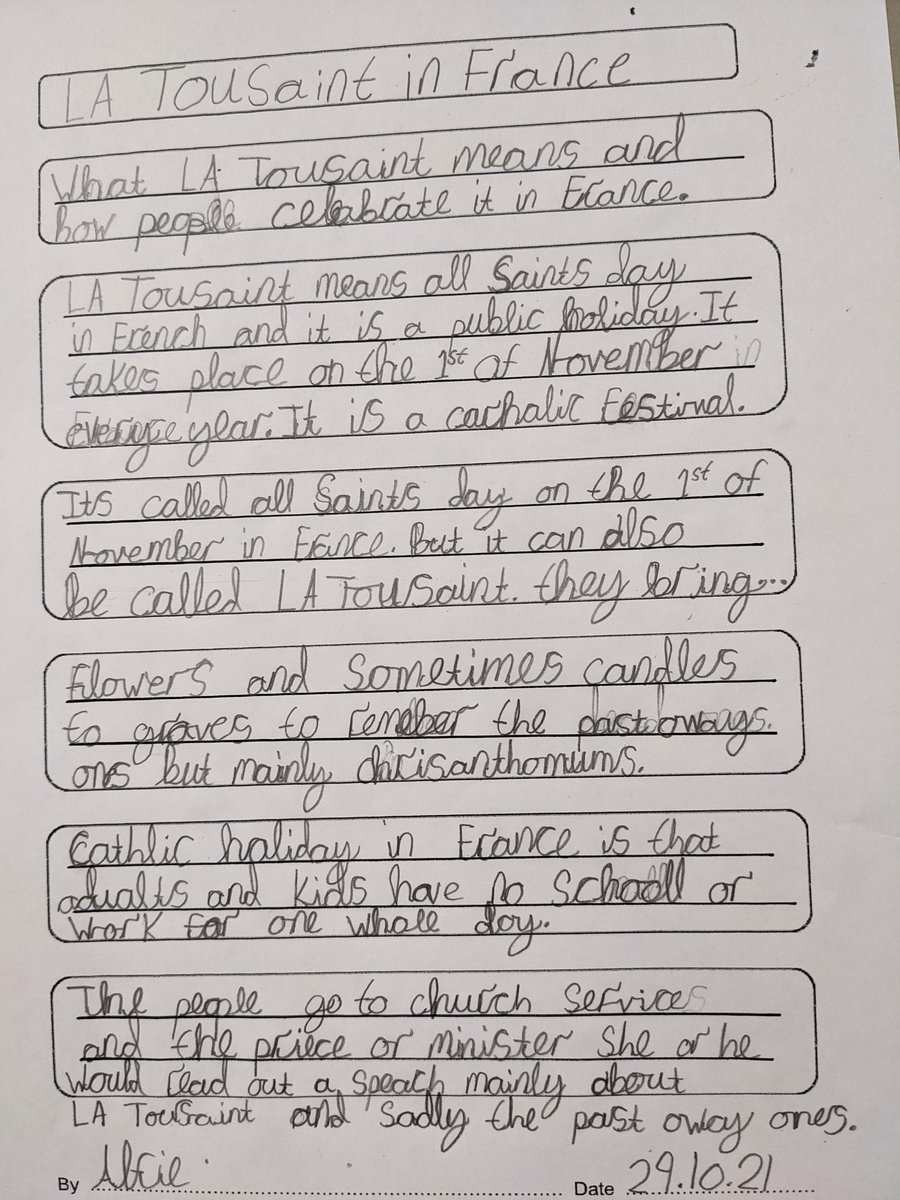 LA Tousaint in France
What LA Tousaint means and
how people celebrate it in France.
LA Tousaint means all Saints day
in French and it is a public holiday. It
takes place on the 1st of November in
year. It is a cathalic festival.
Its called all Saints day on the 1st of
November in France. But it can also
be called LA Tousaint. they bring...
Flowers and Sometimes candles
to graves to the past aways.
ones but mainly chrisanthomums.
Cathlic holiday in France is that
adualts and kids have no School or
work for one whole day.
The people go to church services
and the priece or minister She or he
would read out a speach mainly about
LA Tousaint and sadly the past away ones.
By Alfie. Date 29.10.21